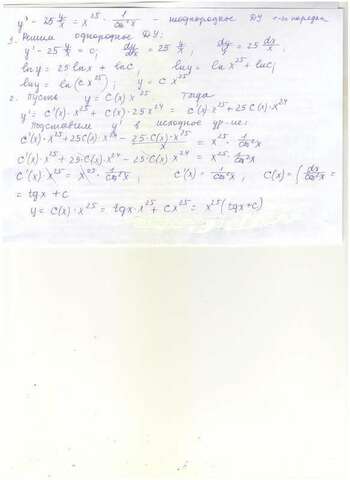 y' - 25 y/x = x^25 · 1/cos²x - неоднородное ДУ 1-го порядка
1. Решим однородное ДУ:
y' - 25 y/x = 0; dy/dx = 25 y/x; dy/y = 25 dx/x;
ln y = 25 ln x + ln C, ln y = ln x^25 + ln C;
ln y = ln (C x^25); y = C x^25
2. Пусть y = C(x) x^25 тогда
y' = C'(x)·x^25 + C(x)·25 x^24 = C'(x) x^25 + 25 C(x)·x^24
Подставим y' в исходное ур-ние:
C'(x)·x^25 + 25 C(x)·x^24 - 25·C(x)·x^25/x = x^25 · 1/cos²x
C'(x)·x^25 + 25·C(x)·x^24 - 25·C(x) x^24 = x^25 · 1/cos²x
C'(x)·x^25 = x^25 · 1/cos²x; C'(x) = 1/cos²x; C(x) = ∫ dx/cos²x =
= tg x + C
y = C(x)·x^25 = tg x · x^25 + C x^25 = x^25 (tg x + C)